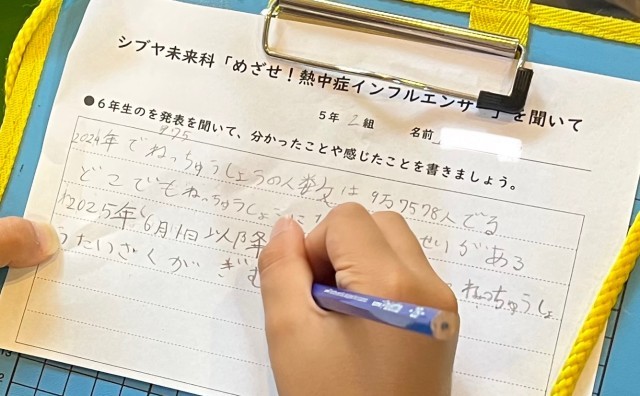 シブヤ未来科「めざせ！熱中症インフルエンサー」を聞いて
5年 2組 名前
●6年生のを発表を聞いて、分かったことや感じたことを書きましょう。
975
2024年でねっちゅうしょうの人数は 9万7578人でる
どこでもねっちゅうしょうに せいがある
2025年6月1日以降 ねっちゅうしょ
うたいさくがぎむ